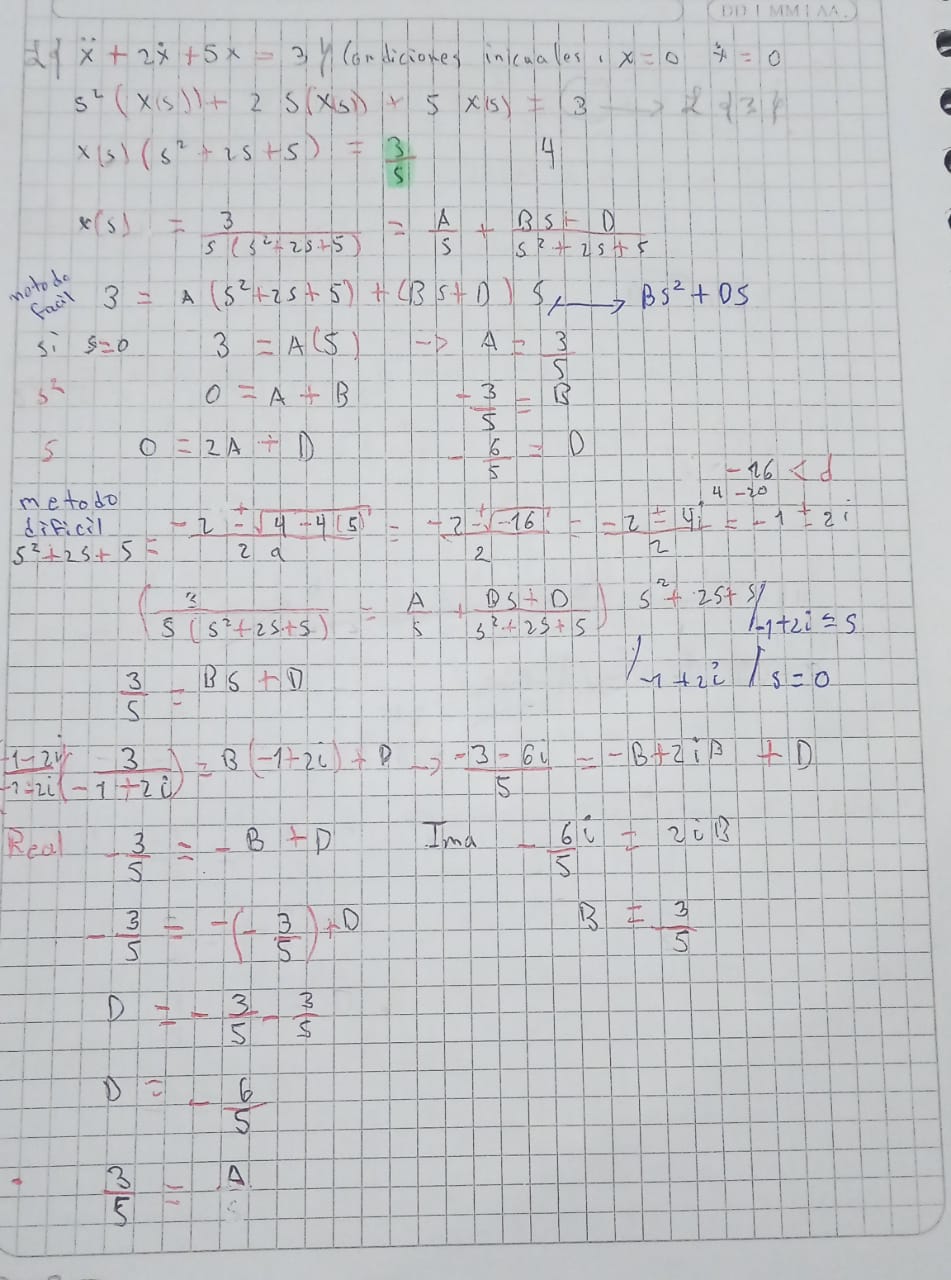 DD | MM | AA.
ℒ{ ẍ + 2ẋ + 5x = 3 } Condiciones inicuales . x = 0 ẋ = 0
s² (x(s)) + 2 s(x(s)) + 5 x(s) = 3 → ℒ{3}
x(s) (s² + 2s + 5) = 3/s 4
x(s) = 3/(s (s² + 2s + 5)) = A/s + (Bs + D)/(s² + 2s + 5)
metodo facil 3 = A (s² + 2s + 5) + (Bs + D) s → Bs² + Ds
si s=0 3 = A(5) -> A = 3/5
s² 0 = A + B - 3/5 = B
s 0 = 2A + D - 6/5 = D
-16 < d
4 -20
metodo dificil
s² + 2s + 5 = (-2 ± √(4 - 4(5)))/(2a) = (-2 ± √(-16))/2 = (-2 ± 4i)/2 = -1 ± 2i
( 3/(s (s² + 2s + 5)) = A/s + (Bs + D)/(s² + 2s + 5) ) s² + 2s + 5/ -1+2i = s
3/s = Bs + D /-1 + 2i / s = 0
(-1-2i)/(-1-2i) ( 3/(-1+2i) ) = B(-1+2i) + D → (-3 - 6i)/5 = -B + 2iB + D
Real - 3/5 = - B + D Ima - 6/5 i = 2iB
- 3/5 = -(- 3/5) + D B = - 3/5
D = - 3/5 - 3/5
D = - 6/5
3/5 = A